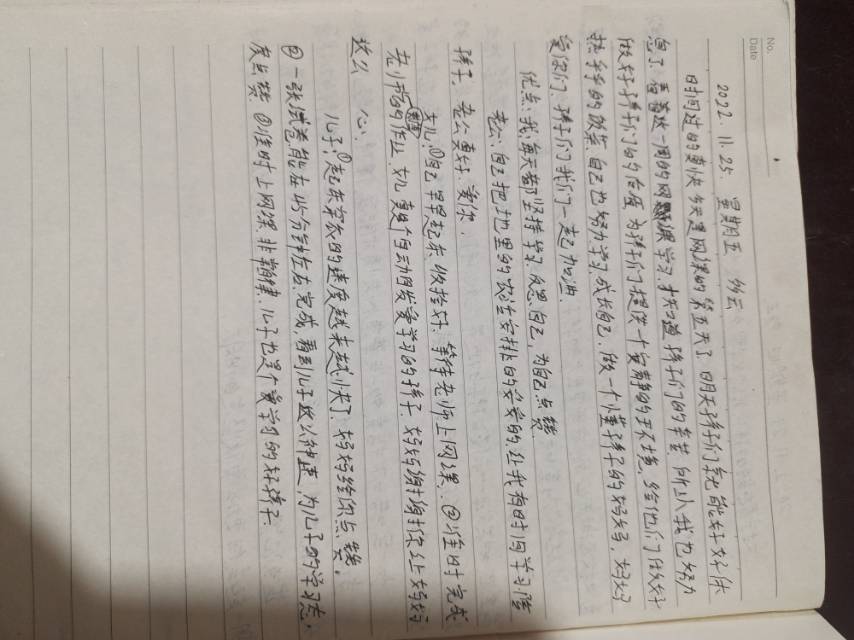 No.
Date
2022. 11. 25. 星期五 多云
时间过的真快今天是网课的第五天了.明天孩子们就能好好休
息了.看着这一周的网课学习才知道孩子们的辛苦.所以我也努力
做好孩子们的后盾,为孩子们提供一个安静的环境,给他们做好
热乎乎的饭菜.自己也努力学习,成长自己.做一个懂孩子的妈妈,妈妈
爱你们.孩子们我们一起加油
优点:我:每天都坚持学习.反思自己,为自己点赞
老公:自己把地里的农活安排的妥妥的,让我有时间学习陪
孩子.老公真好.爱你.
女儿:①自己早早起床.收拾好.等待老师上网课.②准时完成
老师的作业.女儿真是个自动自发爱学习的孩子.妈妈谢谢你让妈妈
这么 心.
儿子:①起床穿衣的速度越来越快了.妈妈给你点赞.
②一张试卷能在45分钟左右完成,看到儿子这么神速,为儿子的学习态
度点赞 ③准时上网课非常棒.儿子也是个爱学习的好孩子.